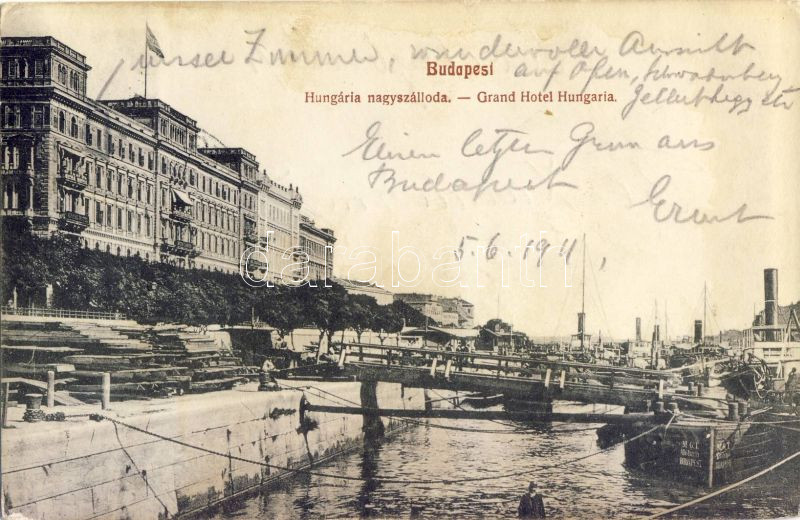 unser Zimmer, wundervoller Aussicht
auf Ofen, Schwabenberg
Gellerthegy etc
Budapest
Hungária nagyszálloda. — Grand Hotel Hungaria.
Einen letzten Gruss aus
Budapest
Ernst
5.6.1911.
darabanth
BUDAPEST